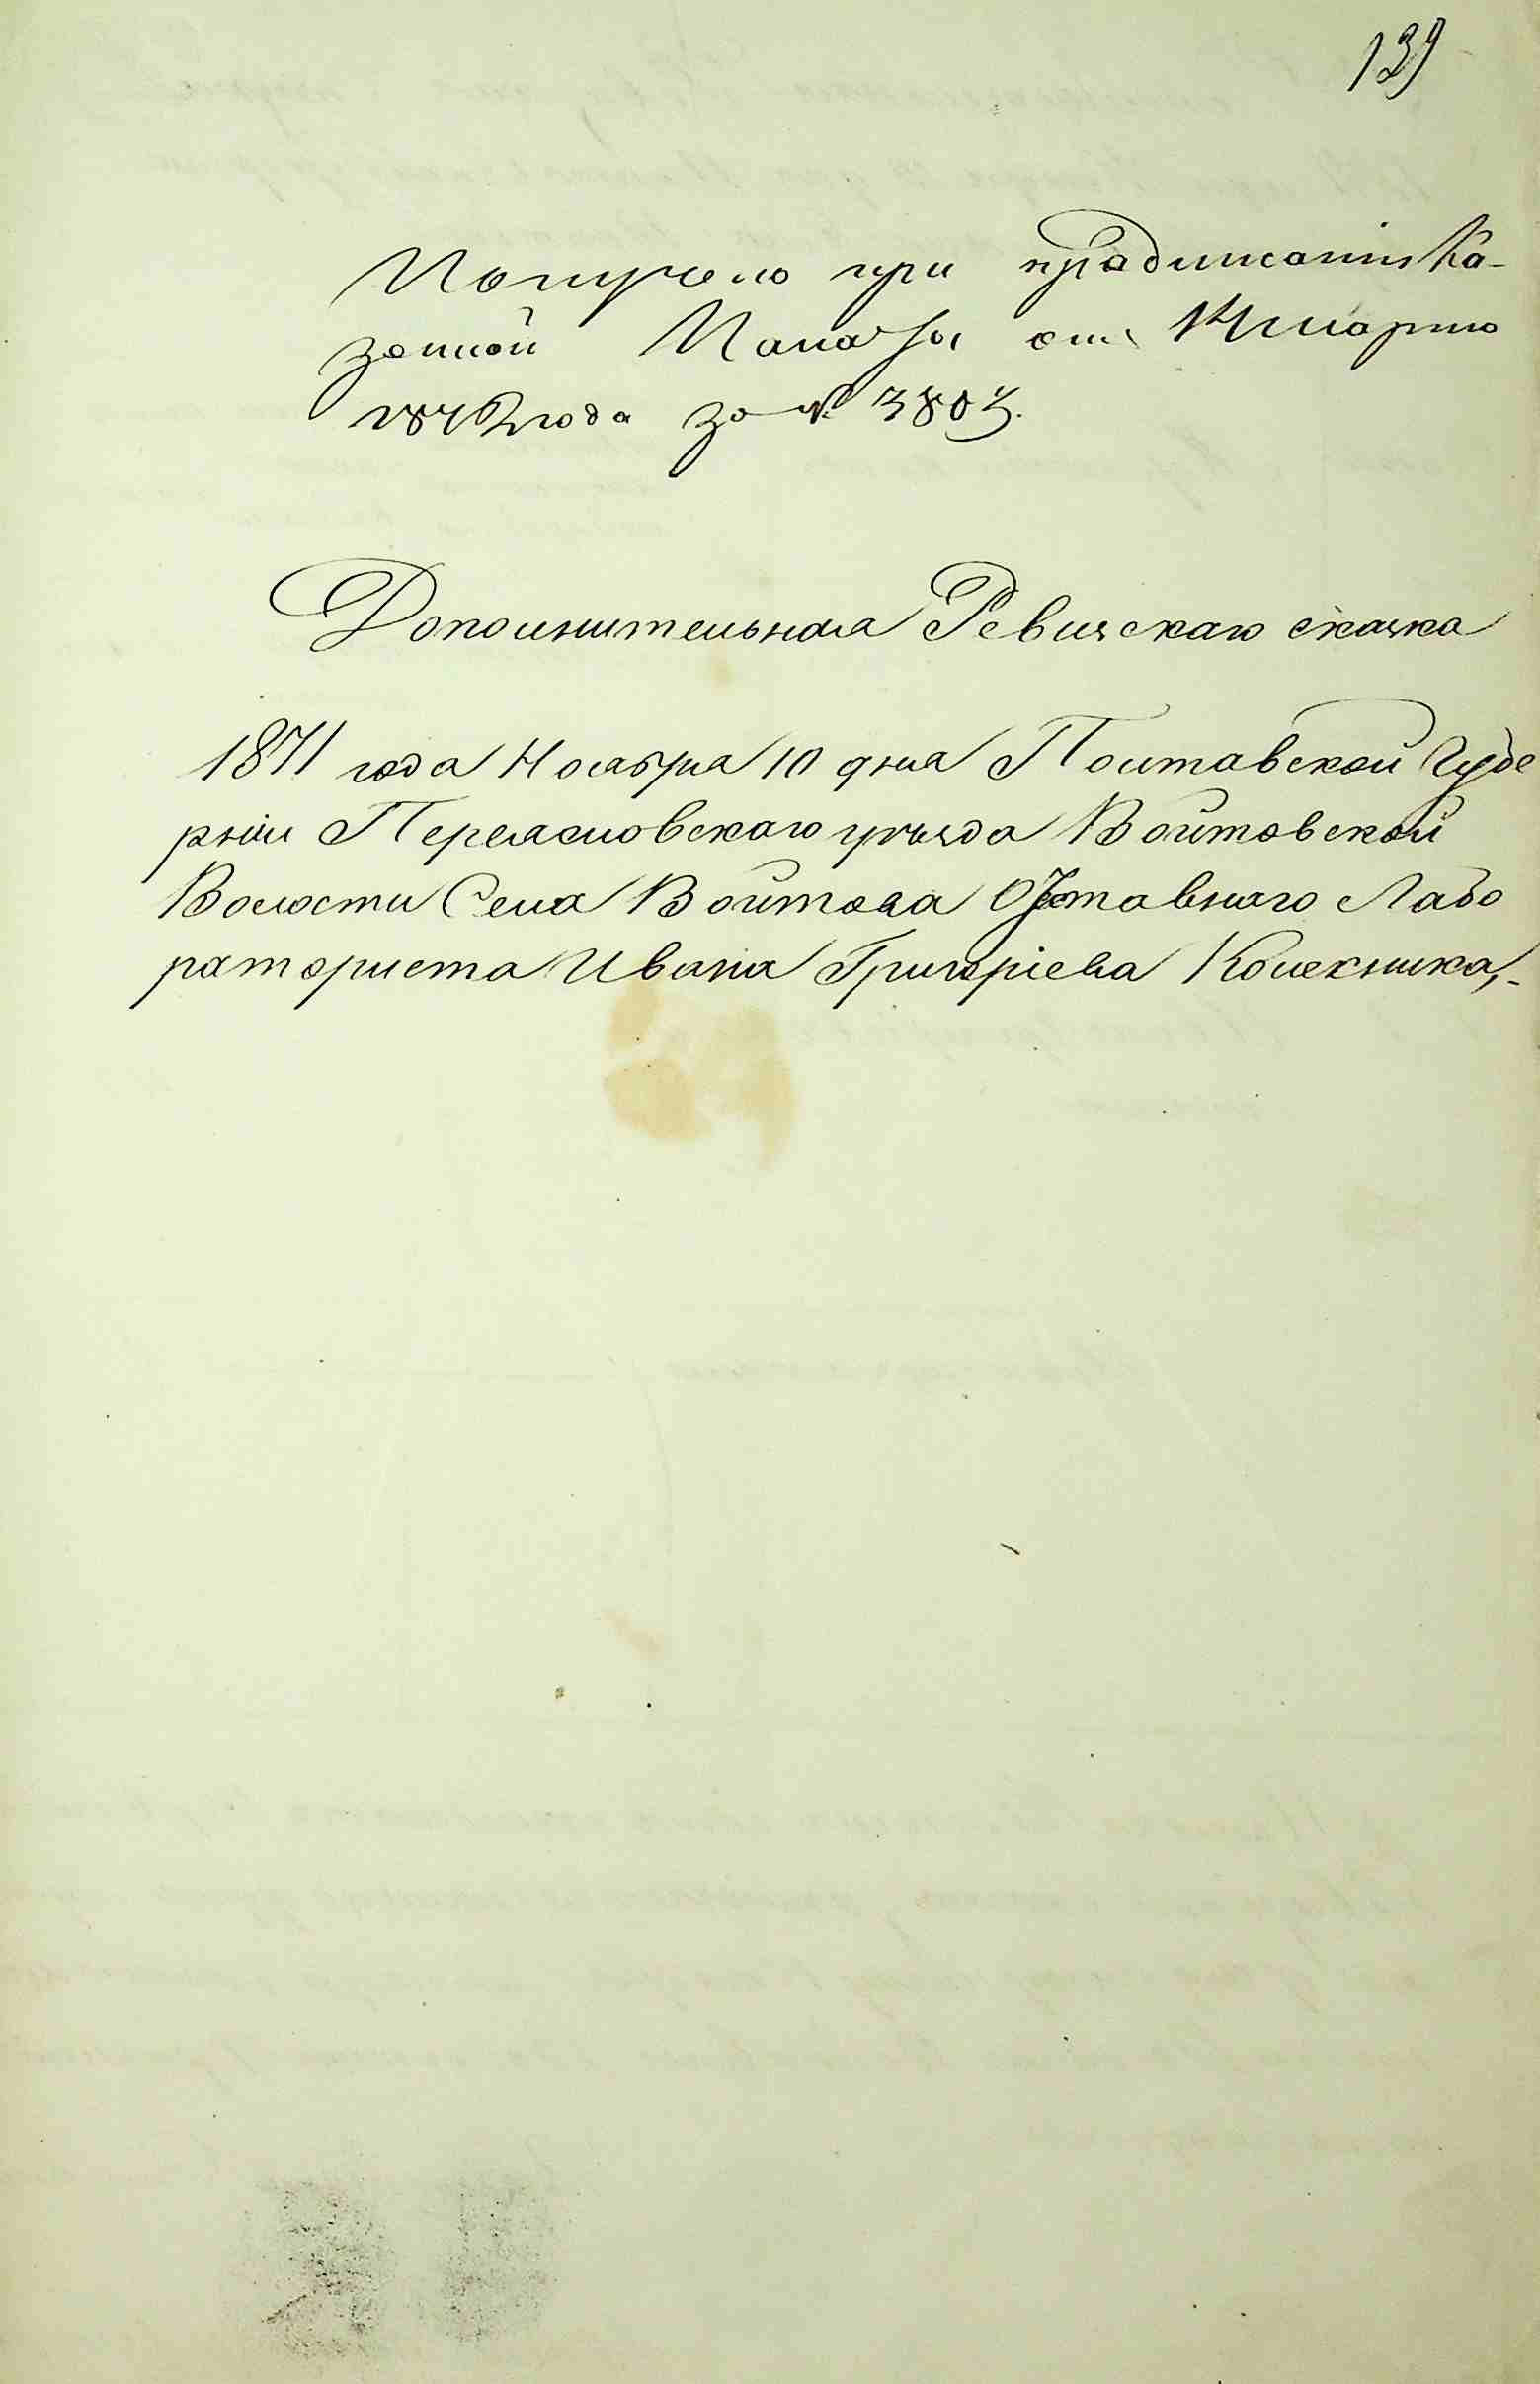 139
Получено при предписаніи Ка-
зенной Палаты отъ 14 марта
1872 года за № 3803.
Дополнительная Ревизская сказка
1871 года Ноября 10 дня Полтавской Губе
рніи Переяславского уѣзда Войтовской
Волости Села Войтова Отставного Лабо
раториста Ивана Григоріева Колесника,-